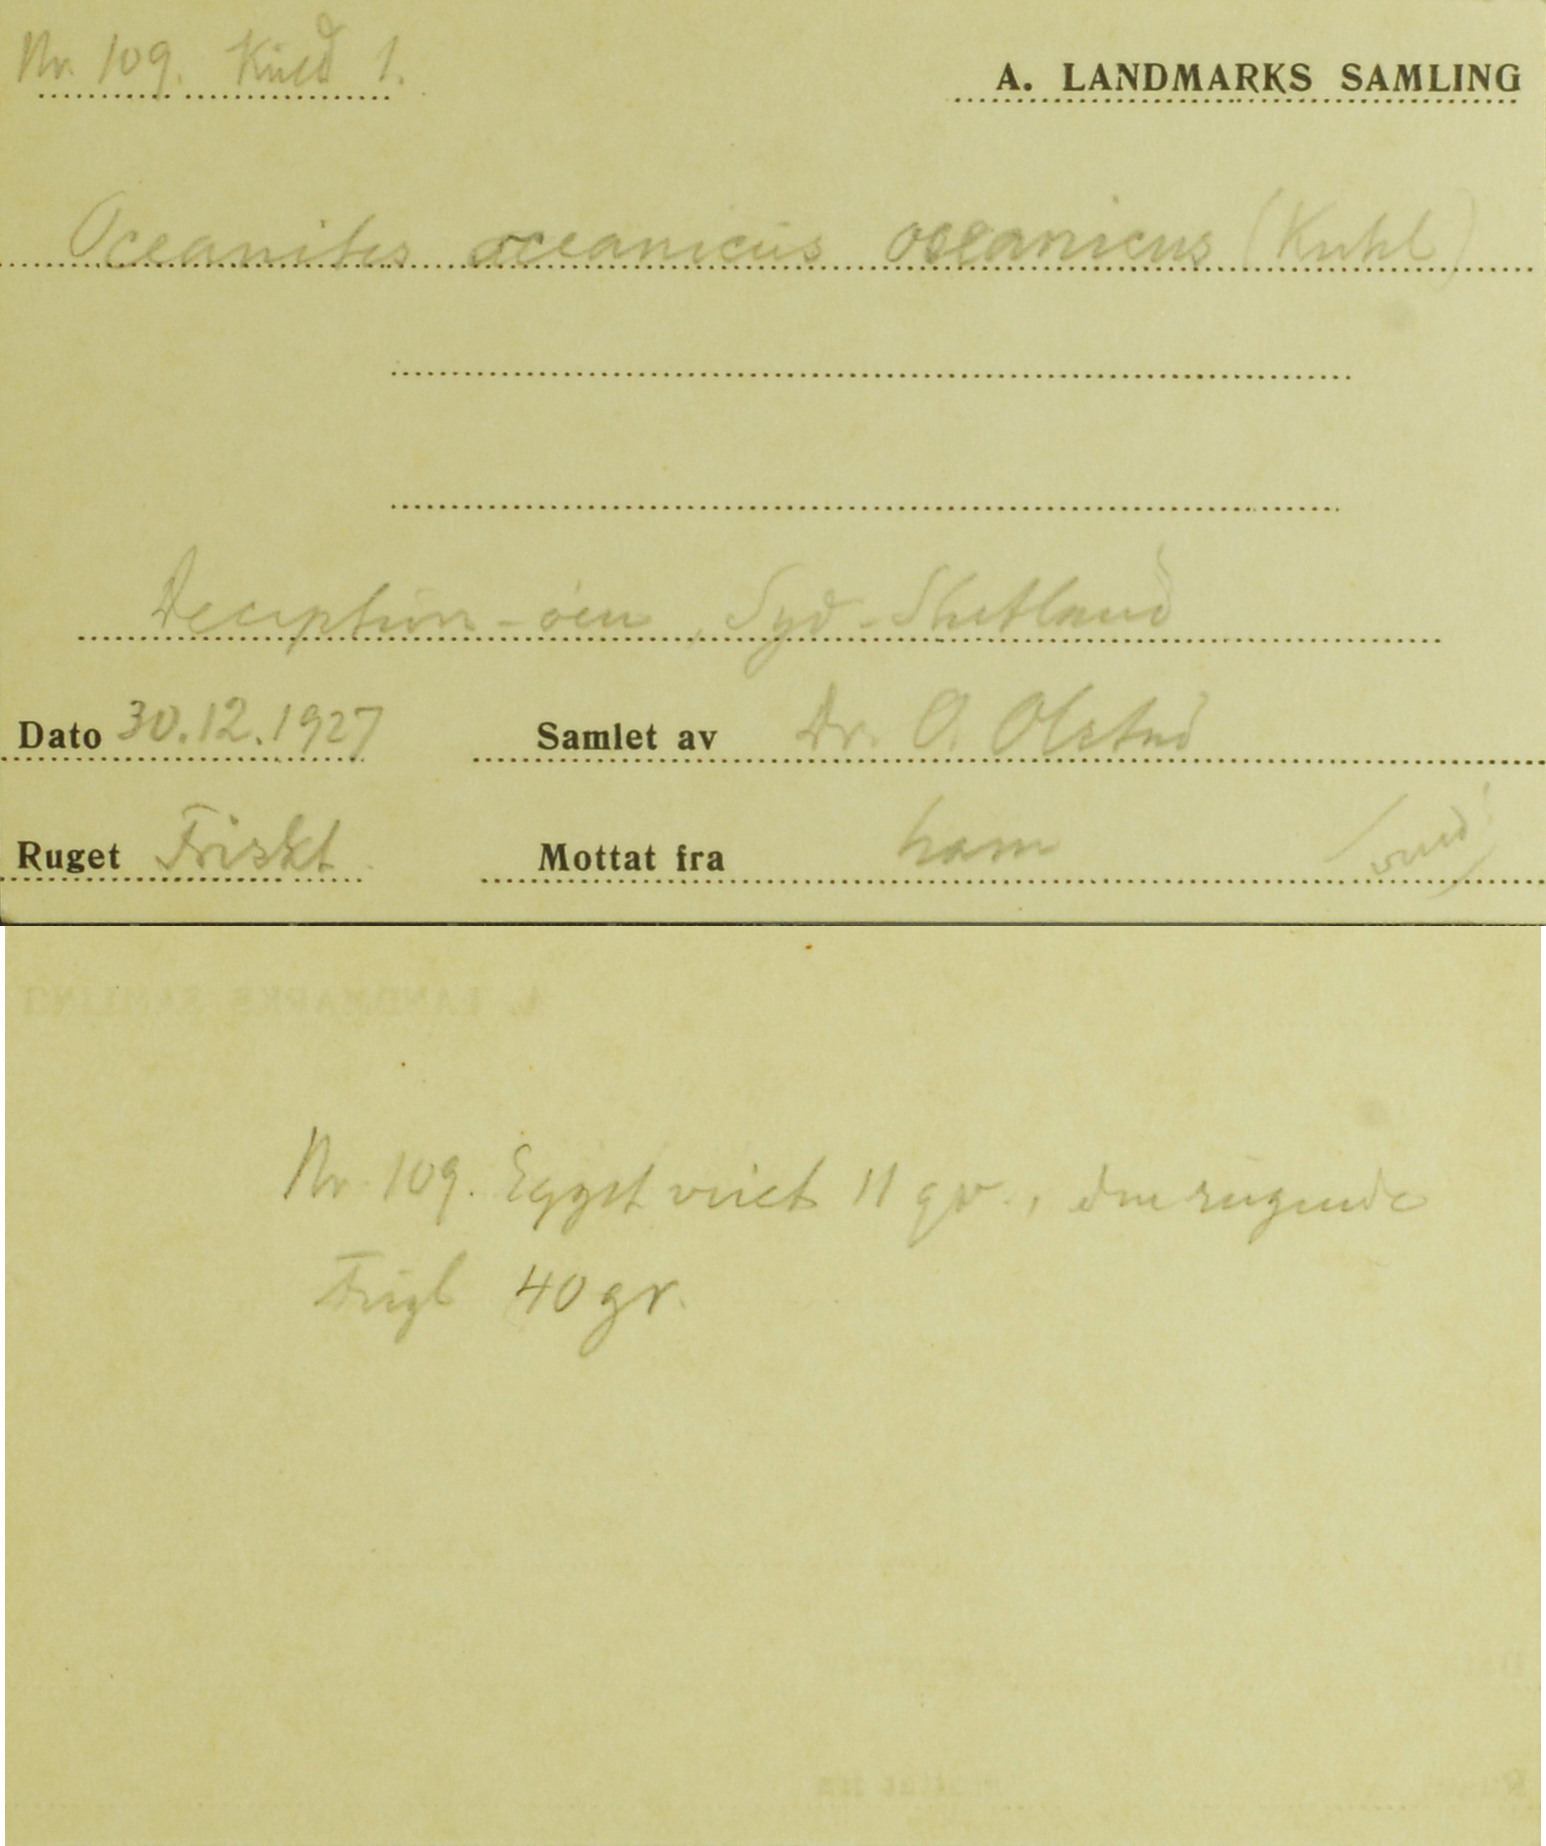 Nr. 109. Kuld 1.
A. LANDMARKS SAMLING
Oceanites oceanicus oceanicus (Kuhl)
Deception-øen, Syd-Shetland
Dato 30.12.1927 Samlet av Dr. O. Olstad
Ruget Friskt Mottat fra ham
Nr. 109. Egget veiet 11 gr., den rugende
Fugl 40 gr.